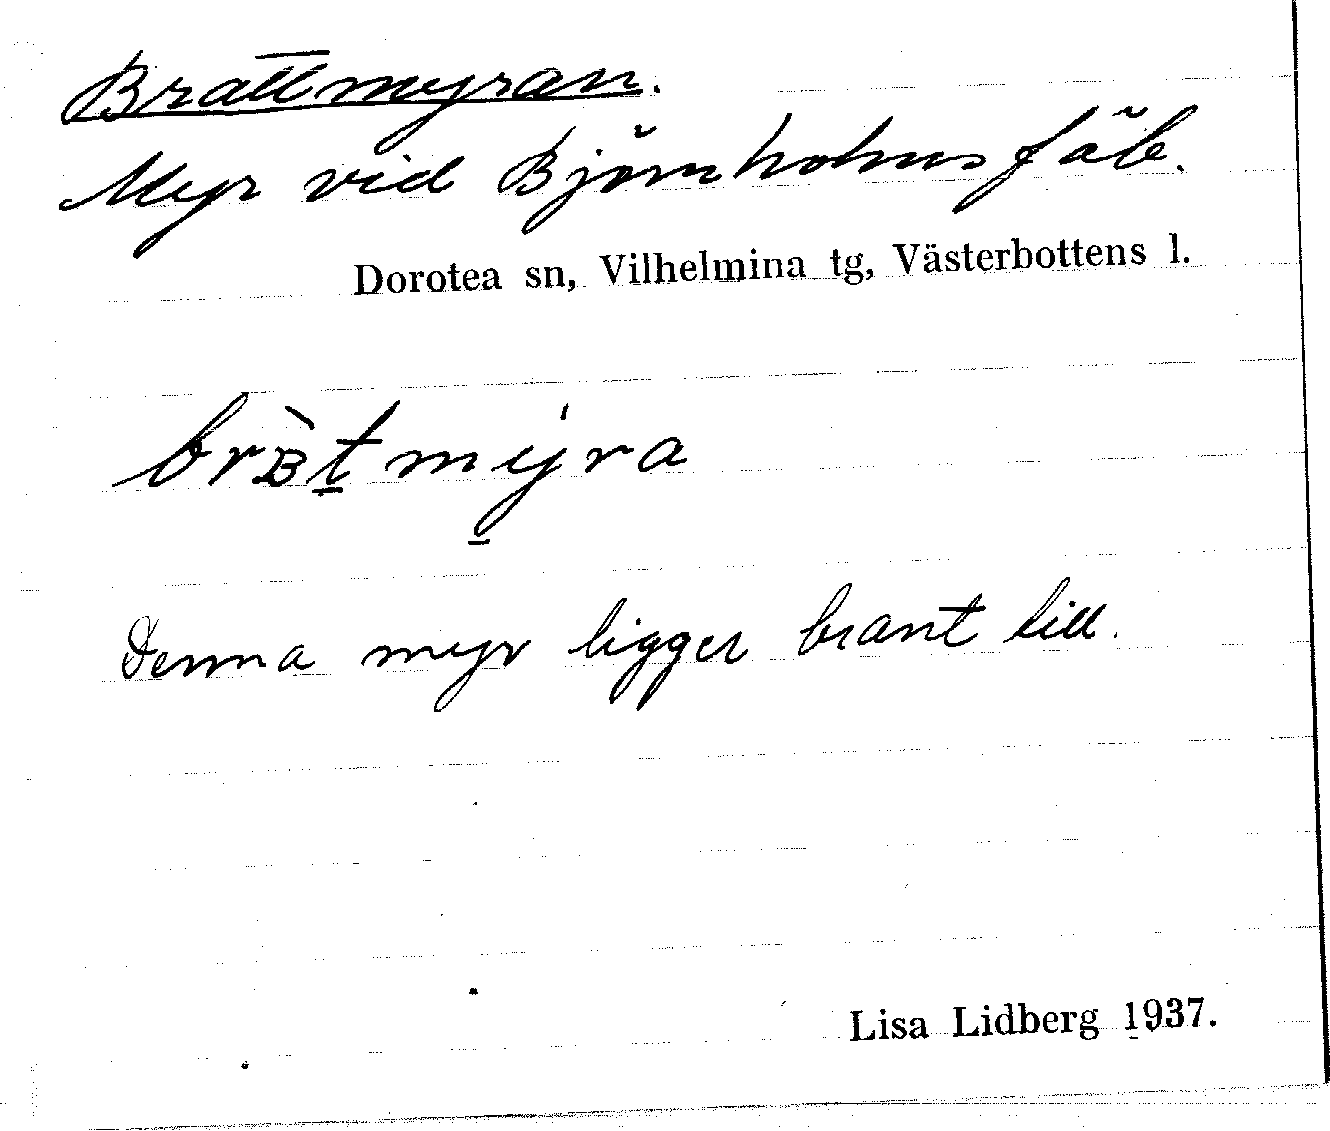 Brattmyran.
Myr vid Björnholmsfäb.
Dorotea sn, Vilhelmina tg, Västerbottens l.
brʙ̀t̲mýra
Denna myr ligger brant till.
Lisa Lidberg 1937.